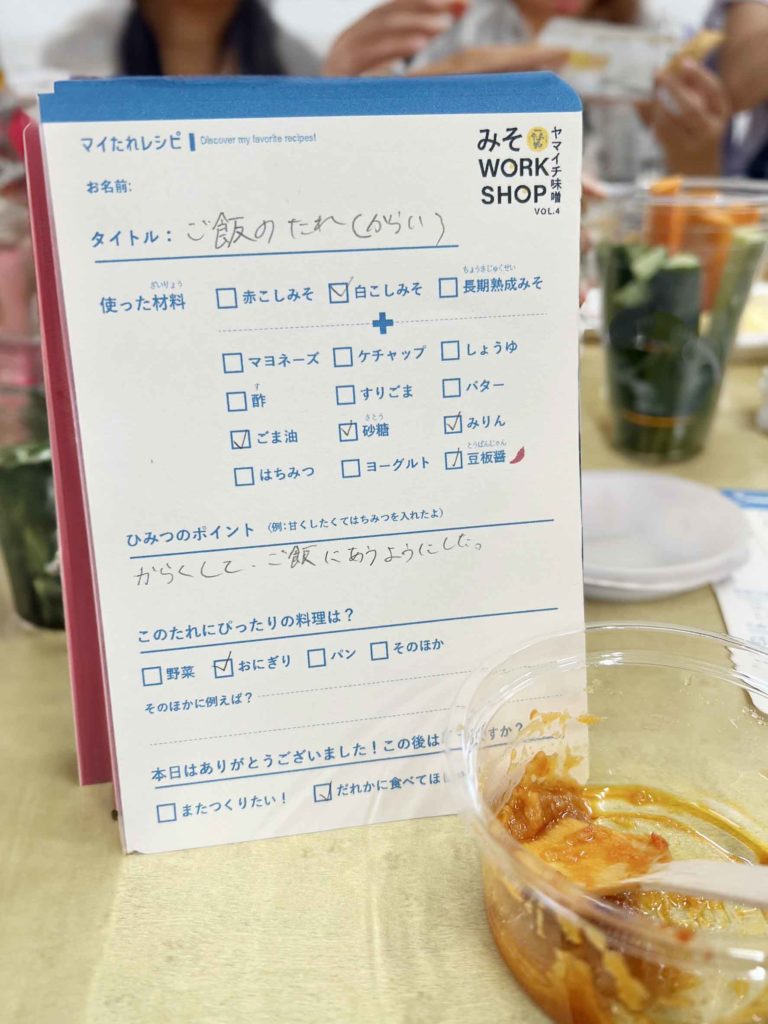 マイたれレシピ Discover my favorite recipes!
みそ
WORK
SHOP
VOL.4
ヤマイチ味噌
お名前:
タイトル: ご飯のたれ(からい)
ざいりょう ちょうきじゅくせい
使った材料 赤こしみそ 白こしみそ 長期熟成みそ
マヨネーズ ケチャップ しょうゆ
す
酢 すりごま バター
さとう
ごま油 砂糖 みりん
とうばんじゃん
はちみつ ヨーグルト 豆板醤
ひみつのポイント (例:甘くしたくてはちみつを入れたよ)
からくして、ご飯にあうようにした。
このたれにぴったりの料理は?
野菜 おにぎり パン そのほか
そのほかに例えば?
本日はありがとうございました!この後は すか?
またつくりたい! だれかに食べてほ